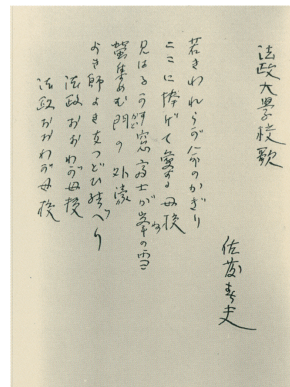 法政大學校歌
佐藤春夫
若きわれらが命のかぎり
ここに捧げて愛する母校
見はるかす窓の富士が峯の雪
蛍集めむ門の外濠
よき師よき友つどひ結べり
法政おおわが母校
法政おおわが母校